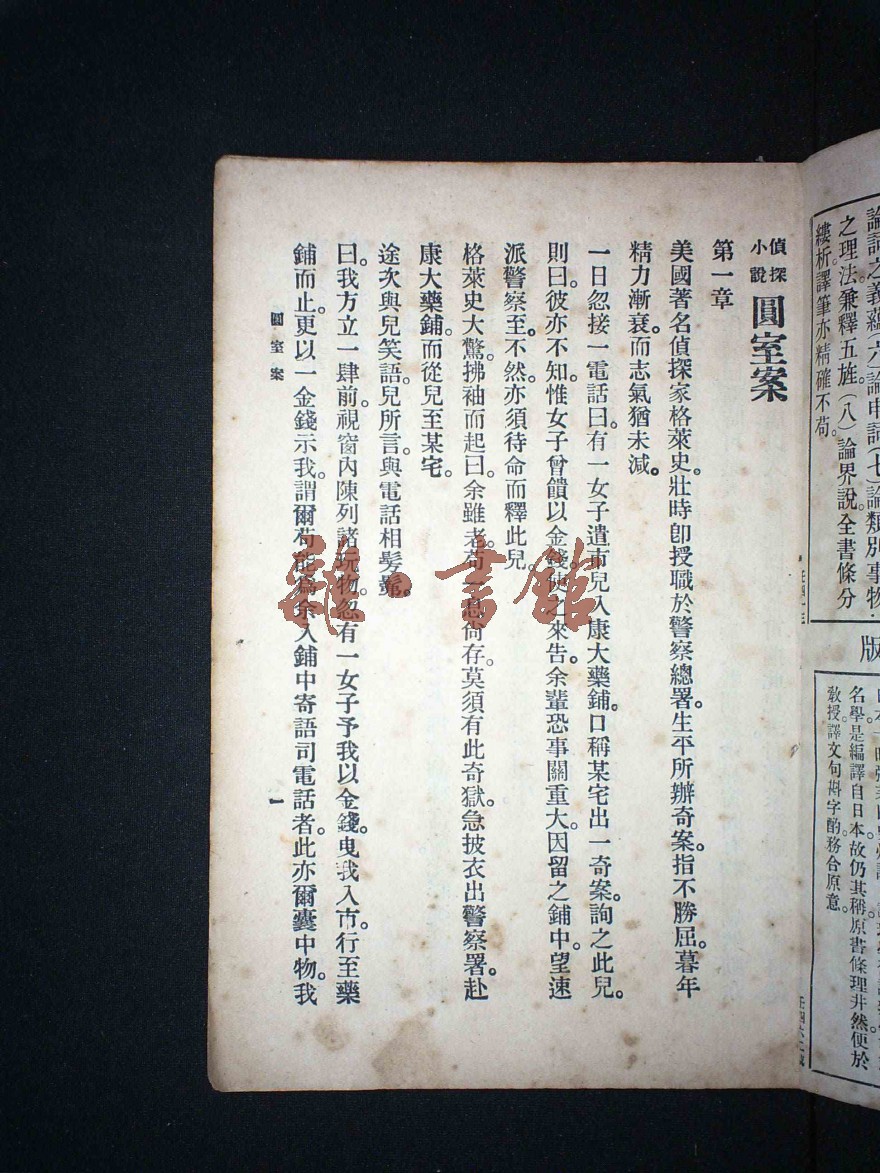 論詞之義蘊(六)論申詞(七)論類別事物.
之理法兼釋五旌(八)論界說。全書條分
縷析譯筆亦精確不苟。
版
名學是編譯自日本故仍其稱原書條理井然便於
敎授。譯文句斟字酌務合原意。
偵探
小說
圓室案
第一章
美國著名偵探家格萊史。壯時卽授職於警察總署。生平所辦奇案。指不勝屈。暮年
精力漸衰。而志氣猶未減。
一日忽接一電話曰。有一女子遣市兒入康大藥鋪。口稱某宅出一奇案。詢之此兒。
則曰。彼亦不知。惟女子曾饋以金錢。使之來告。余輩恐事關重大。因留之鋪中。望速
派警察至。不然亦須待命而釋此兒。
格萊史大驚。拂袖而起曰。余雖老。苟一息尙存。莫須有此奇獄。急披衣出警察署。赴
康大藥鋪。而從兒至某宅。
途次與兒笑語。兒所言。與電話相髣髴。
曰。我方立一肆前。視窗內陳列諸玩物。忽有一女子予我以金錢。曳我入市。行至藥
鋪而止。更以一金錢示我。謂爾苟能爲余入鋪中寄語司電話者。此亦爾囊中物。我
圓室案
一
雜·書館